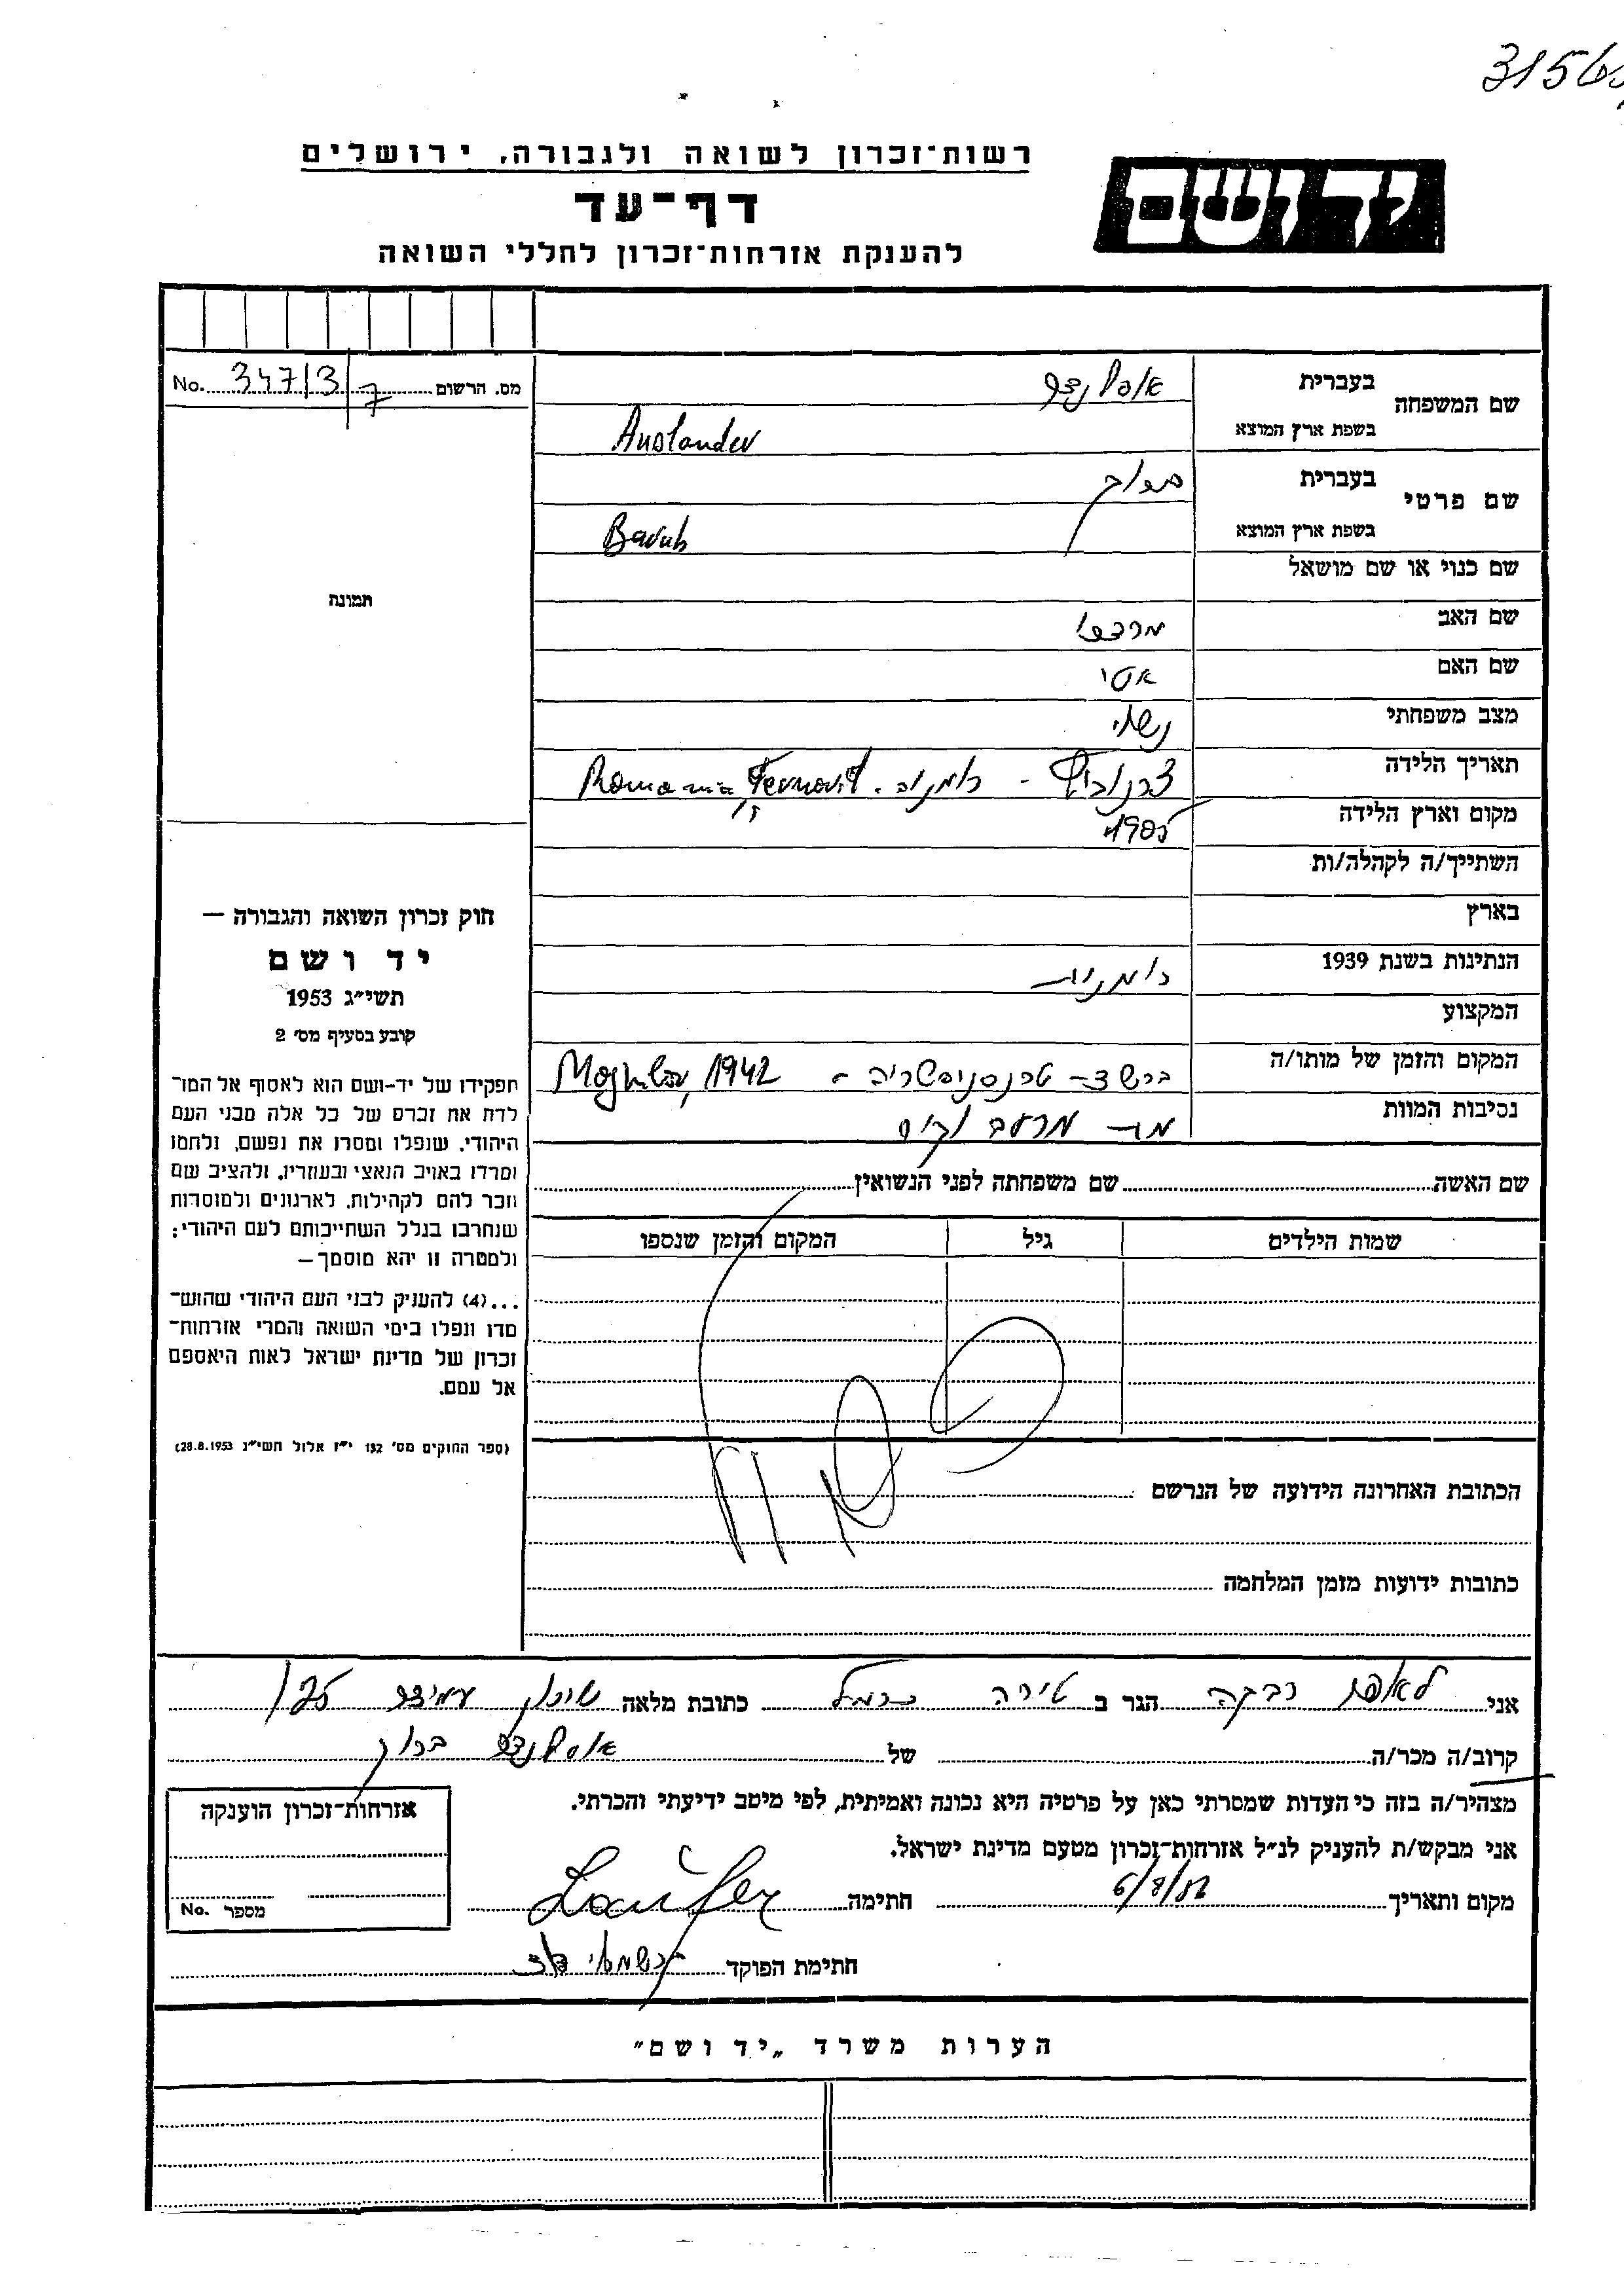 רשות־זכרון לשואה ולגבורה, ירושלים
יד ושם
דף־עד
להענקת אזרחות־זכרון לחללי השואה
מס. הרשום 347/3/7 No.
שם המשפחה
בעברית
אוסלנדר
בשפת ארץ המוצא
Auslander
שם פרטי
בעברית
ברוך
בשפת ארץ המוצא
Baruh
שם כנוי או שם מושאל
תמונה
שם האב מרדכי
שם האם אטי
מצב משפחתי נשוי
תאריך הלידה צרנוביץ - רומניה. Romania
מקום וארץ הלידה 1905
השתייך/ה לקהלה/ות
בארץ
הנתינות בשנת 1939 רומנית
המקצוע
המקום והזמן של מותו/ה ברשד - טרנסניסטריה - Moghilov, 1942
נסיבות המוות מת מרעב וקור
שם האשה שם משפחתה לפני הנשואין
שמות הילדים גיל המקום והזמן שנספו
הכתובת האחרונה הידועה של הנרשם
כתובות ידועות מזמן המלחמה
חוק זכרון השואה והגבורה —
יד ושם
תשי״ג 1953
קובע בסעיף מס׳ 2
תפקידו של יד-ושם הוא לאסוף אל המו־
לדת את זכרם של כל אלה מבני העם
היהודי, שנפלו ומסרו את נפשם, נלחמו
ומרדו באויב הנאצי ובעוזריו, ולהציב שם
וזכר להם לקהילות, לארגונים ולמוסדות
שנחרבו בגלל השתייכותם לעם היהודי;
ולמטרה זו יהא מוסמך—
...(4) להעניק לבני העם היהודי שהוש־
מדו ונפלו בימי השואה והמרי אזרחות־
זכרון של מדינת ישראל לאות היאספם
אל עמם.
(ספר החוקים מס׳ 132 י״ז אלול תשי״ג 28.8.1953)
אני לאופר רבקה הגר ב טירה כרמל כתובת מלאה שיכון עמידר 125
קרוב/ה מכר/ה של אוסלנדר ברוך
מצהיר/ה בזה כי העדות שמסרתי כאן על פרטיה היא נכונה ואמיתית, לפי מיטב ידיעתי והכרתי.
אני מבקש/ת להעניק לנ״ל אזרחות־זכרון מטעם מדינת ישראל.
מקום ותאריך חתימה Laufer
חתימת הפוקד
אזרחות־זכרון הוענקה
מספר No.
הערות משרד „יד ושם״